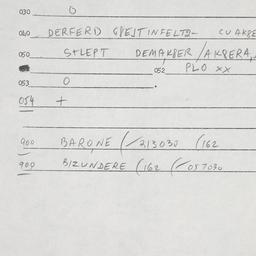 030 0
040 DERFERD
050 S+LEPT DEMAKBER /AKBERA,
052 PLO XX
053 0 .
054 +
900 BARONE (/213030 (162
900 BIZUNDERE (162 (/057030